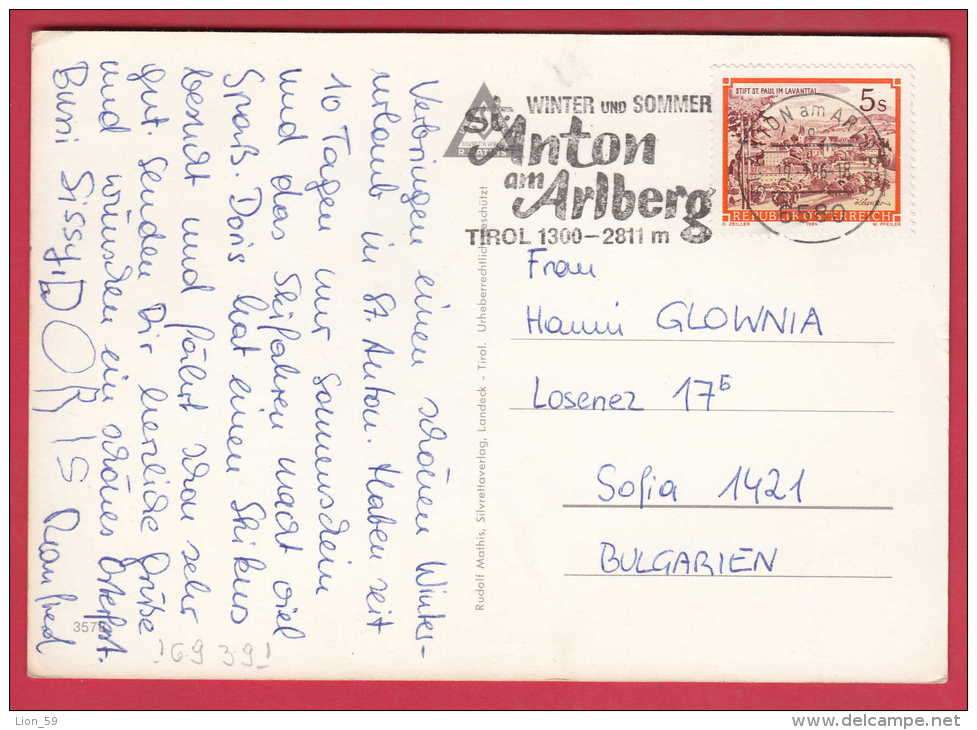 Verbringen einen schönen Winter-
urlaub in St. Anton. Haben seit
10 Tagen nur Sonnenschein
und das Skifahren macht viel
Spaß. Doris hat einen Skikurs
besucht und fährt schon sehr
gut. Senden Dir herzliche Grüße
und wünschen ein schönes Osterfest.
Bussi Sissy, DORIS Manfred
3575
16939!
Rudolf Mathis, Silvrettaverlag, Landeck - Tirol. Urheberrechtlich geschützt!
WINTER UND SOMMER
St. Anton
am Arlberg
TIROL 1300-2811 m
STIFT ST. PAUL IM LAVANTTAL
5 S
REPUBLIK ÖSTERREICH
O. ZEILLER 1984 W. PFEILER
ANTON am ARL
6580
Frau
Hanni GLOWNIA
Losenez 17E
Sofia 1421
BULGARIEN
Lion_59
www.delcampe.net